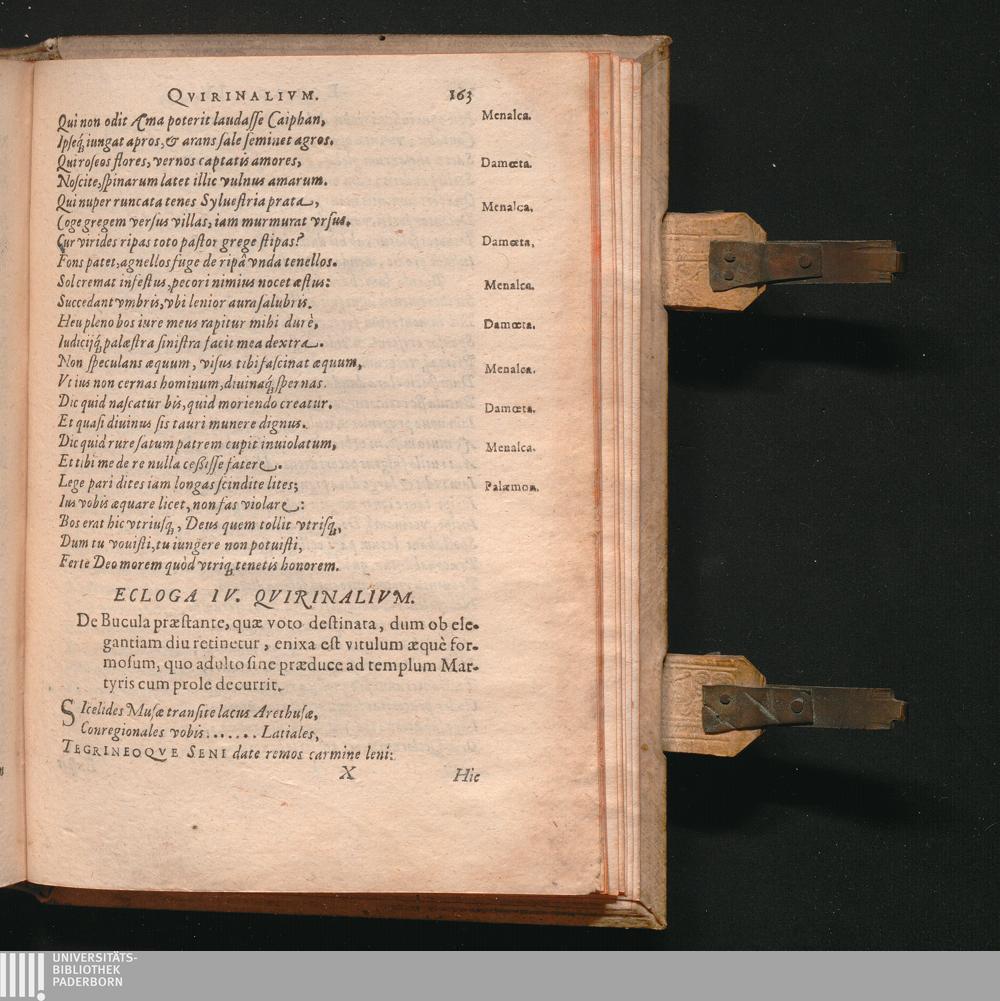 QVIRINALIVM. 163
Qui non odit Æma poterit laudaſſe Caiphan, Menalca.
Ipſeq́; iungat apros, & arans ſale ſeminet agros.
Qui roſeos flores, vernos captatis amores, Damœta.
Noſcite, ſpinarum latet illic vulnus amarum.
Qui nuper runcata tenes Sylueſtria prata, Menalca.
Coge gregem verſus villas, iam murmurat vrſus.
Cur virides ripas toto paſtor grege ſtipas? Damœta,
Fons patet, agnellos fuge de ripâ vnda tenellos.
Sol cremat infeſtus, pecori nimius nocet æſtus: Menalca.
Succedant vmbris, vbi lenior aura ſalubris.
Heu pleno bos iure meus rapitur mihi durè, Damœta.
Iudicijq́; palæſtra ſiniſtra facit mea dextra.
Non ſpeculans æquum, viſus tibi faſcinat æquum, Menalca.
Vt ius non cernas hominum, diuinaq́; ſpernas.
Dic quid naſcatur bis, quid moriendo creatur. Damœta.
Et quaſi diuinus ſis tauri munere dignus.
Dic quid rure ſatum patrem cupit inuiolatum, Menalca.
Et tibi me de re nulla ceßiſſe fatere.
Lege pari dites iam longas ſcindite lites; Palæmon.
Ius vobis æquare licet, non fas violare:
Bos erat hic vtriuſq;, Deus quem tollit vtriſq;,
Dum tu vouiſti, tu iungere non potuiſti,
Ferte Deo morem quòd vtriq; tenetis honorem.
ECLOGA IV. QVIRINALIVM.
De Bucula præſtante, quæ voto deſtinata, dum ob ele-
gantiam diu retinetur, enixa eſt vitulum æquè for-
moſum, quo adulto ſine præduce ad templum Mar-
tyris cum prole decurrit.
SIcelides Muſæ tranſite lacus Arethuſæ,
Conregionales vobis....... Latiales,
TEGRINEOQVE SENI date remos carmine leni:
X Hic
UNIVERSITÄTS-
BIBLIOTHEK
PADERBORN